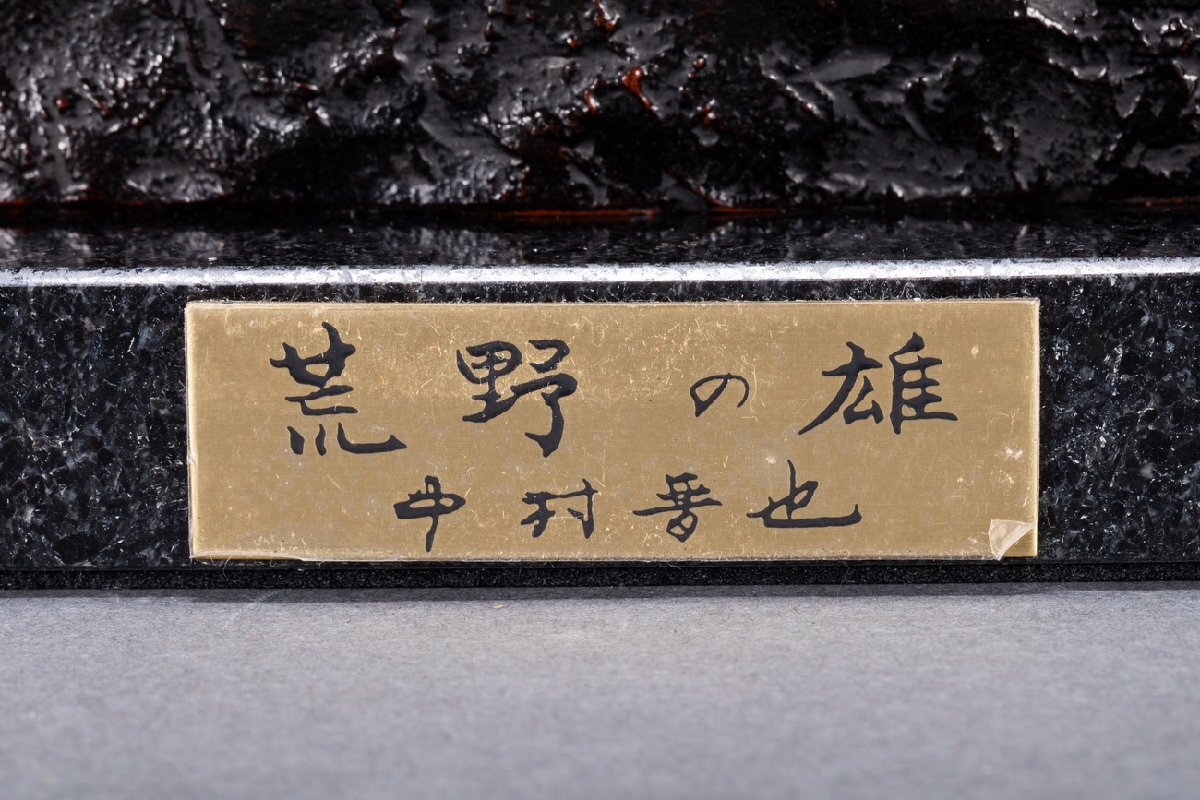 荒野の雄
中村晋也